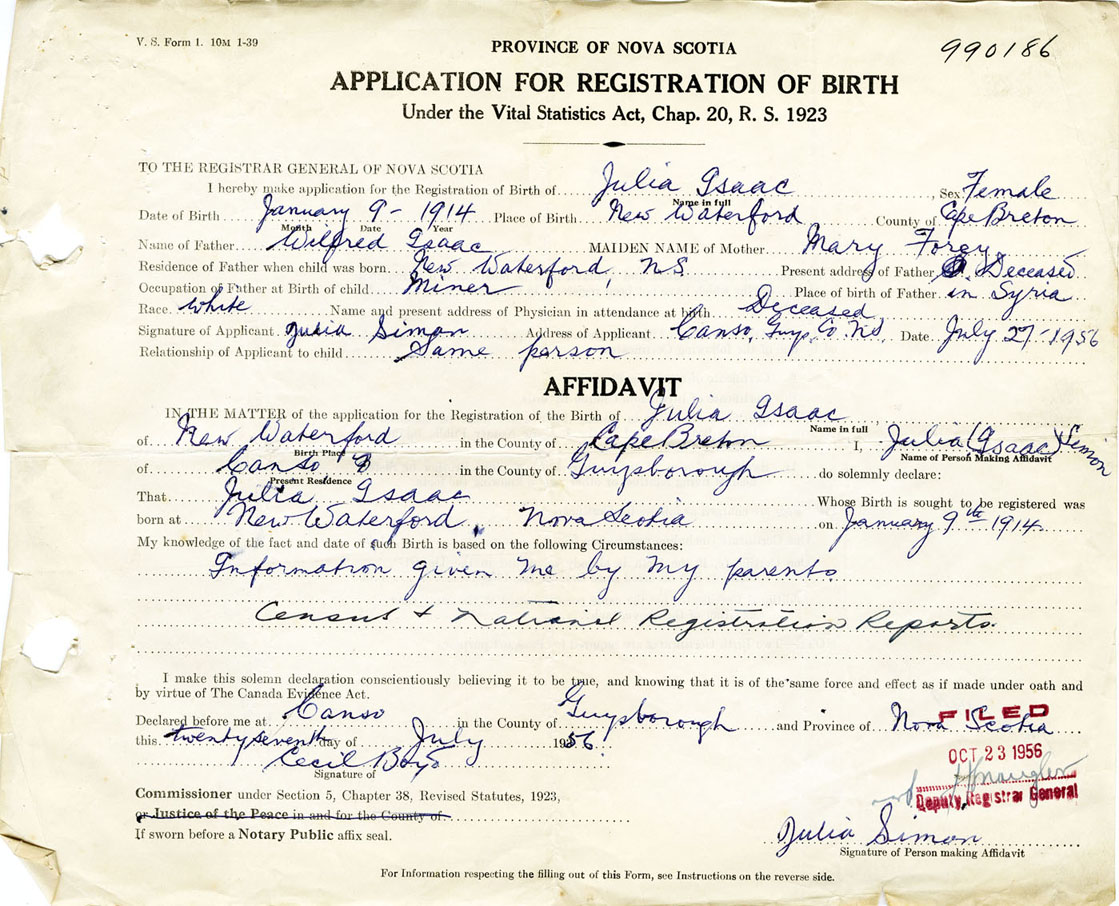 V. S. Form 1. 10M 1-39
PROVINCE OF NOVA SCOTIA
990186
APPLICATION FOR REGISTRATION OF BIRTH
Under the Vital Statistics Act, Chap. 20, R. S. 1923
TO THE REGISTRAR GENERAL OF NOVA SCOTIA
I hereby make application for the Registration of Birth of Julia Isaac Sex Female
Name in full
Date of Birth January 9 - 1914 Place of Birth New Waterford County of Cape Breton
Month Date Year
Name of Father Wilfred Isaac MAIDEN NAME of Mother Mary Forey
Residence of Father when child was born New Waterford, N.S. Present address of Father Deceased
Occupation of Father at Birth of child Miner Place of birth of Father in Syria
Race White Name and present address of Physician in attendance at birth Deceased
Signature of Applicant Julia Simon Address of Applicant Canso, Guys. Co NS. Date July 27 - 1956
Relationship of Applicant to child Same person
AFFIDAVIT
IN THE MATTER of the application for the Registration of the Birth of Julia Isaac
Name in full
of New Waterford in the County of Cape Breton I, Julia (Isaac) Simon
Birth Place Name of Person Making Affidavit
of Canso in the County of Guysborough do solemnly declare:
Present Residence
That Julia Isaac Whose Birth is sought to be registered was
born at New Waterford, Nova Scotia on January 9th 1914
My knowledge of the fact and date of such Birth is based on the following Circumstances:
Information given me by my parents
Census & National Registration Reports.
I make this solemn declaration conscientiously believing it to be true, and knowing that it is of the same force and effect as if made under oath and
by virtue of The Canada Evidence Act.
Declared before me at Canso in the County of Guysborough and Province of Nova Scotia
FILED
this twenty seventh day of July 1956
OCT 23 1956
Cecil
Signature of
Deputy Registrar General
Commissioner under Section 5, Chapter 38, Revised Statutes, 1923,
or Justice of the Peace in and for the County of
If sworn before a Notary Public affix seal.
Julia Simon
Signature of Person making Affidavit
For Information respecting the filling out of this Form, see Instructions on the reverse side.